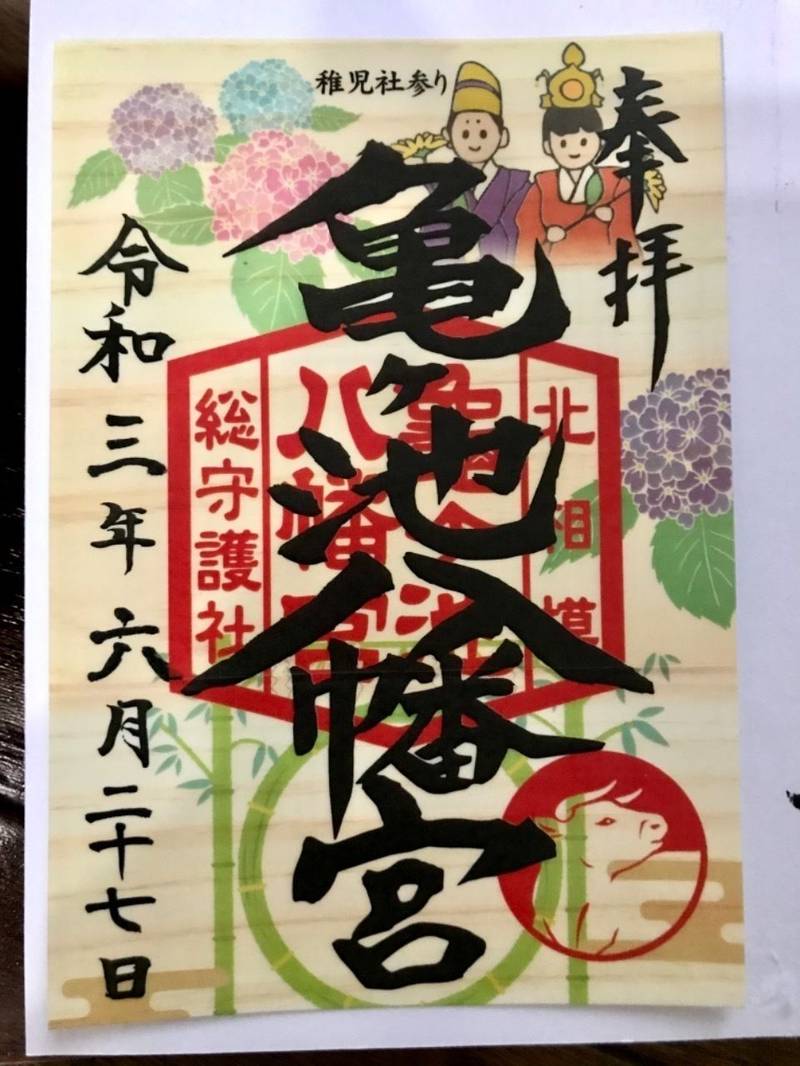 稚児社参り
奉拝
亀ヶ池八幡宮
北相模
龜ヶ池
八幡宮
総守護社
令和三年六月二十七日